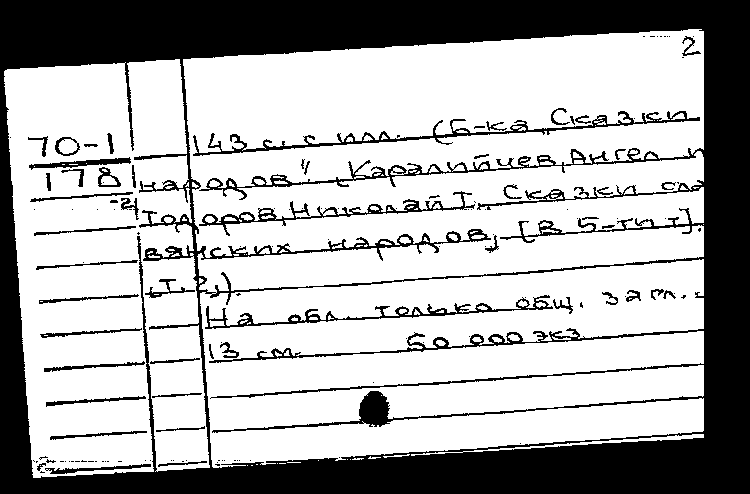 2
70-1
178
-2
143 с. с илл. (Б-ка „Сказки
народов". Каралийчев, Ангел и
Тодоров, Николай I. Сказки сла
вянских народов, [В 5-ти т].
, т. 2,).
На обл. только общ. загл. -
13 см. 50 000 экз